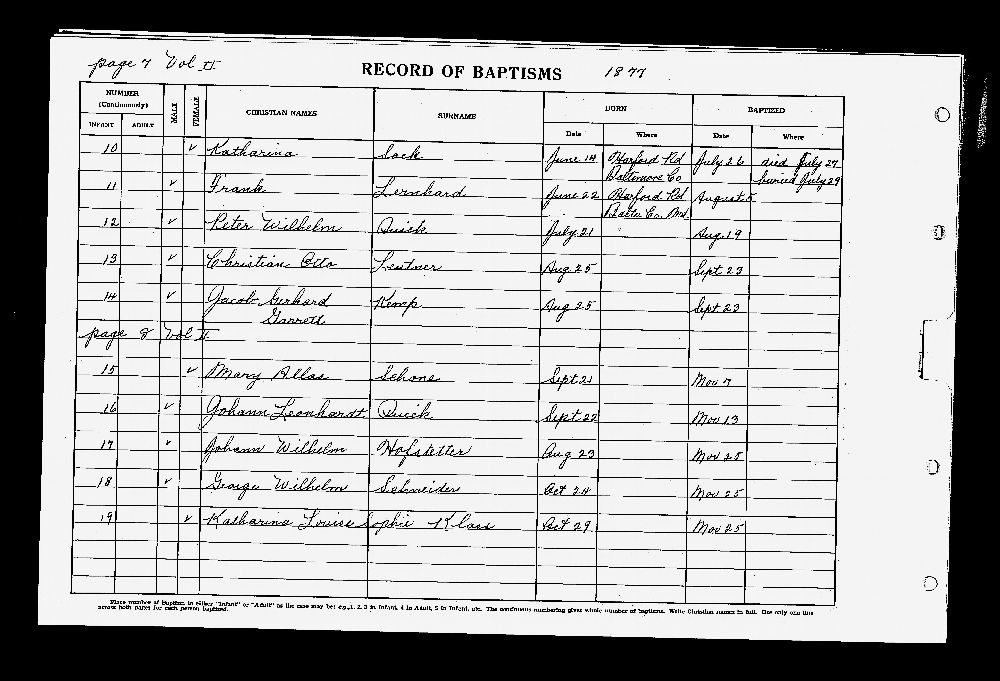 page 7 Vol II
RECORD OF BAPTISMS 1877
NUMBER (Continuously) MALE FEMALE CHRISTIAN NAMES SURNAME BORN BAPTIZED
INFANT ADULT Date Where Date Where
10 ✓ Katharina Sock June 14 Harford Rd July 26 died July 27
Baltimore Co buried July 29
11 ✓ Frank Leonhard June 22 Harford Rd August 5
Balto Co. Md.
12 ✓ Peter Wilhelm Quick July 21 Aug. 19
13 ✓ Christian Otto Leutner Aug. 25 Sept 23
14 ✓ Jacob Gerhard Kemp Aug 25 Sept. 23
Garrett
page 8 Vol II
15 ✓ Mary Schone Sept 21 Nov 7
16 ✓ Johann Leonhardt Quick Sept 22 Nov 13
17 ✓ Johann Wilhelm Hofstetter Aug 23 Nov 25
18 ✓ George Wilhelm Schneider Oct 24 Nov 25
19 ✓ Katharina Louise Sophie Klass Oct 29 Nov 25
Place number of Baptism in either "Infant" or "Adult" as the case may be: e.g., 1, 2, 3 in Infant, 4 in Adult, 5 in Infant, etc. The continuous numbering gives whole number of baptisms. Write Christian names in full. Use only one line
across both pages for each person baptized.